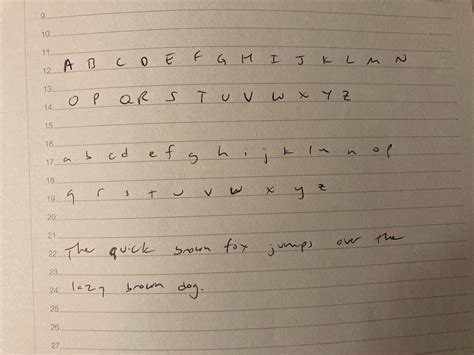 9
10
11
12 A B C D E F G H I J K L M N
13
14 O P Q R S T U V W X Y Z
15
16
17 a b c d e f g h i j k l m n o p
18
19 q r s t u v w x y z
20
21
22 The quick brown fox jumps over the
23
24 lazy brown dog.
25
26
27